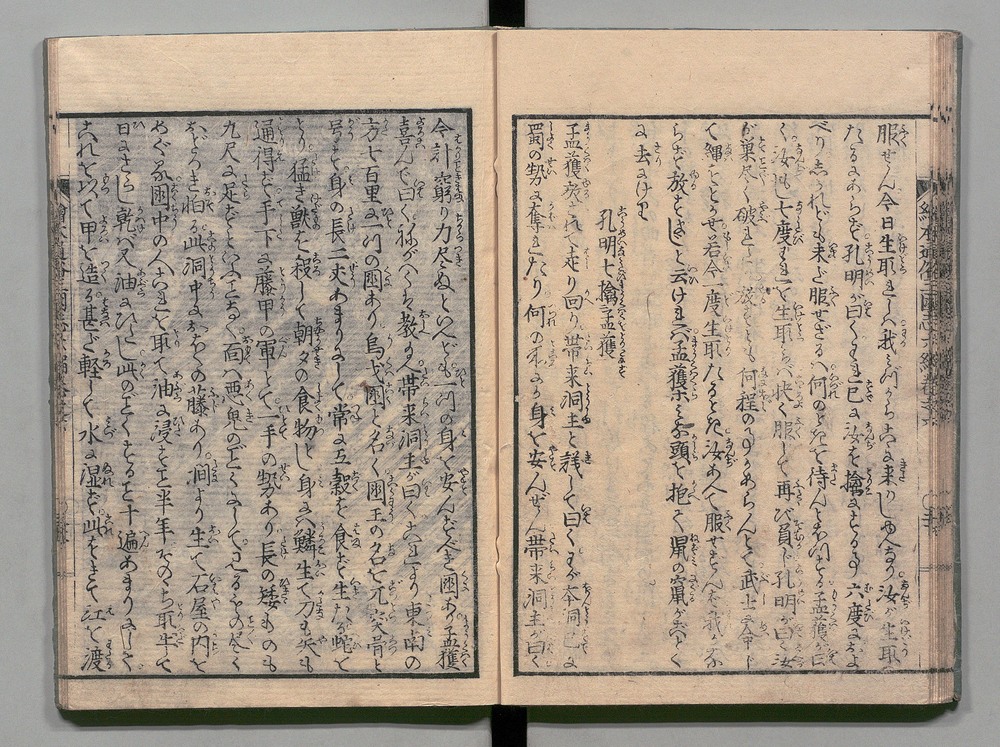 服せん今日生取れしハ我みづからこゝに来りしゆへなり汝が生取
たるにあらず孔明が曰くわれ已に汝を擒にする事六度におよ
べりしかれども未だ服せざるハ何のときを待んとおもふぞ孟獲が曰
く汝もし七度われを生取らバ快く服して再び負じ孔明が曰く汝
が巣尽く破れたり放すとも何程の事かあらんとて武士に命じ
て縄をとかせ若今一度生取たるとき汝あへて服せずんバ我かな
らず放すまじと云けれバ孟獲東西頭を抱て鼠の竄がごとく
に去にけり
孔明七擒孟獲
孟獲放されて走り回り帯来洞主と議して曰くわが本洞已に
蜀の勢に奪れたり何の所にか身を安んぜん帯来洞主が曰く
今計窮り力尽ぬといへども一門の身を安んずべき国あり孟獲
喜んで曰く祢がハくハ教へ給へ帯来洞主が曰くこれより東南の
方七百里に一門の国あり烏戈国と名く国王の名を兀突骨と
号す身の長二丈あまりにして常に五穀を食せず生たる蛇と
より猛き獣を殺して朝夕の食物とし身にハ鱗生て刀も矢も
通得ず手下に藤甲の軍とて一手の勢あり長の矮きものも
九尺に足ずといふことなく面ハ悪鬼のごとくにして見るもの尽く
おどろき怕る此洞中におほくの藤あり澗より生て石屋の内を
めぐる国中の人これを取て油に浸すこと半年そのゝち取出て
日にさらし乾バ又油にひたし此のごとくすること十遍あまりにして
これを以て甲を造る甚だ軽して水に湿ず此をきて江を渡